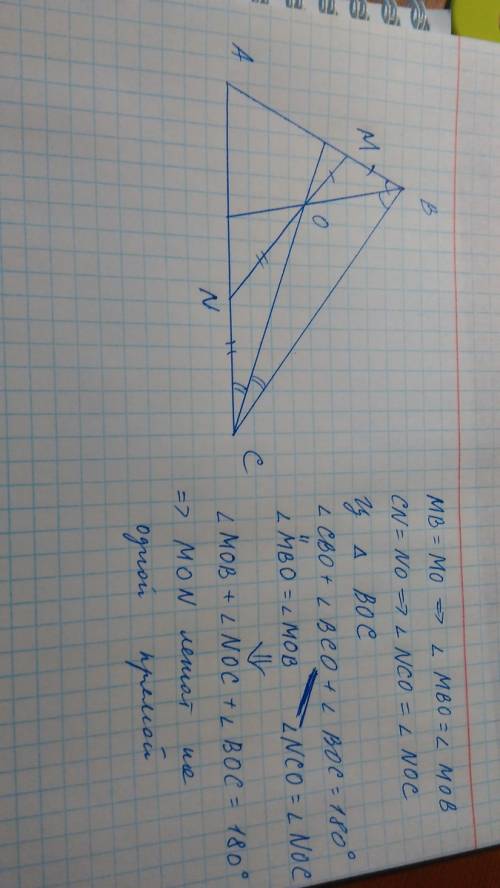 A
M
B
O
N
C
MB = MO => ∠ MBO = ∠ MOB
CN = NO => ∠ NCO = ∠ NOC
Из Δ BOC
∠ CBO + ∠ BCO + ∠ BOC = 180°
∠ MBO = ∠ MOB ∠ NCO = ∠ NOC
⇓
∠ MOB + ∠ NOC + ∠ BOC = 180°
=> MON лежат на
одной прямой